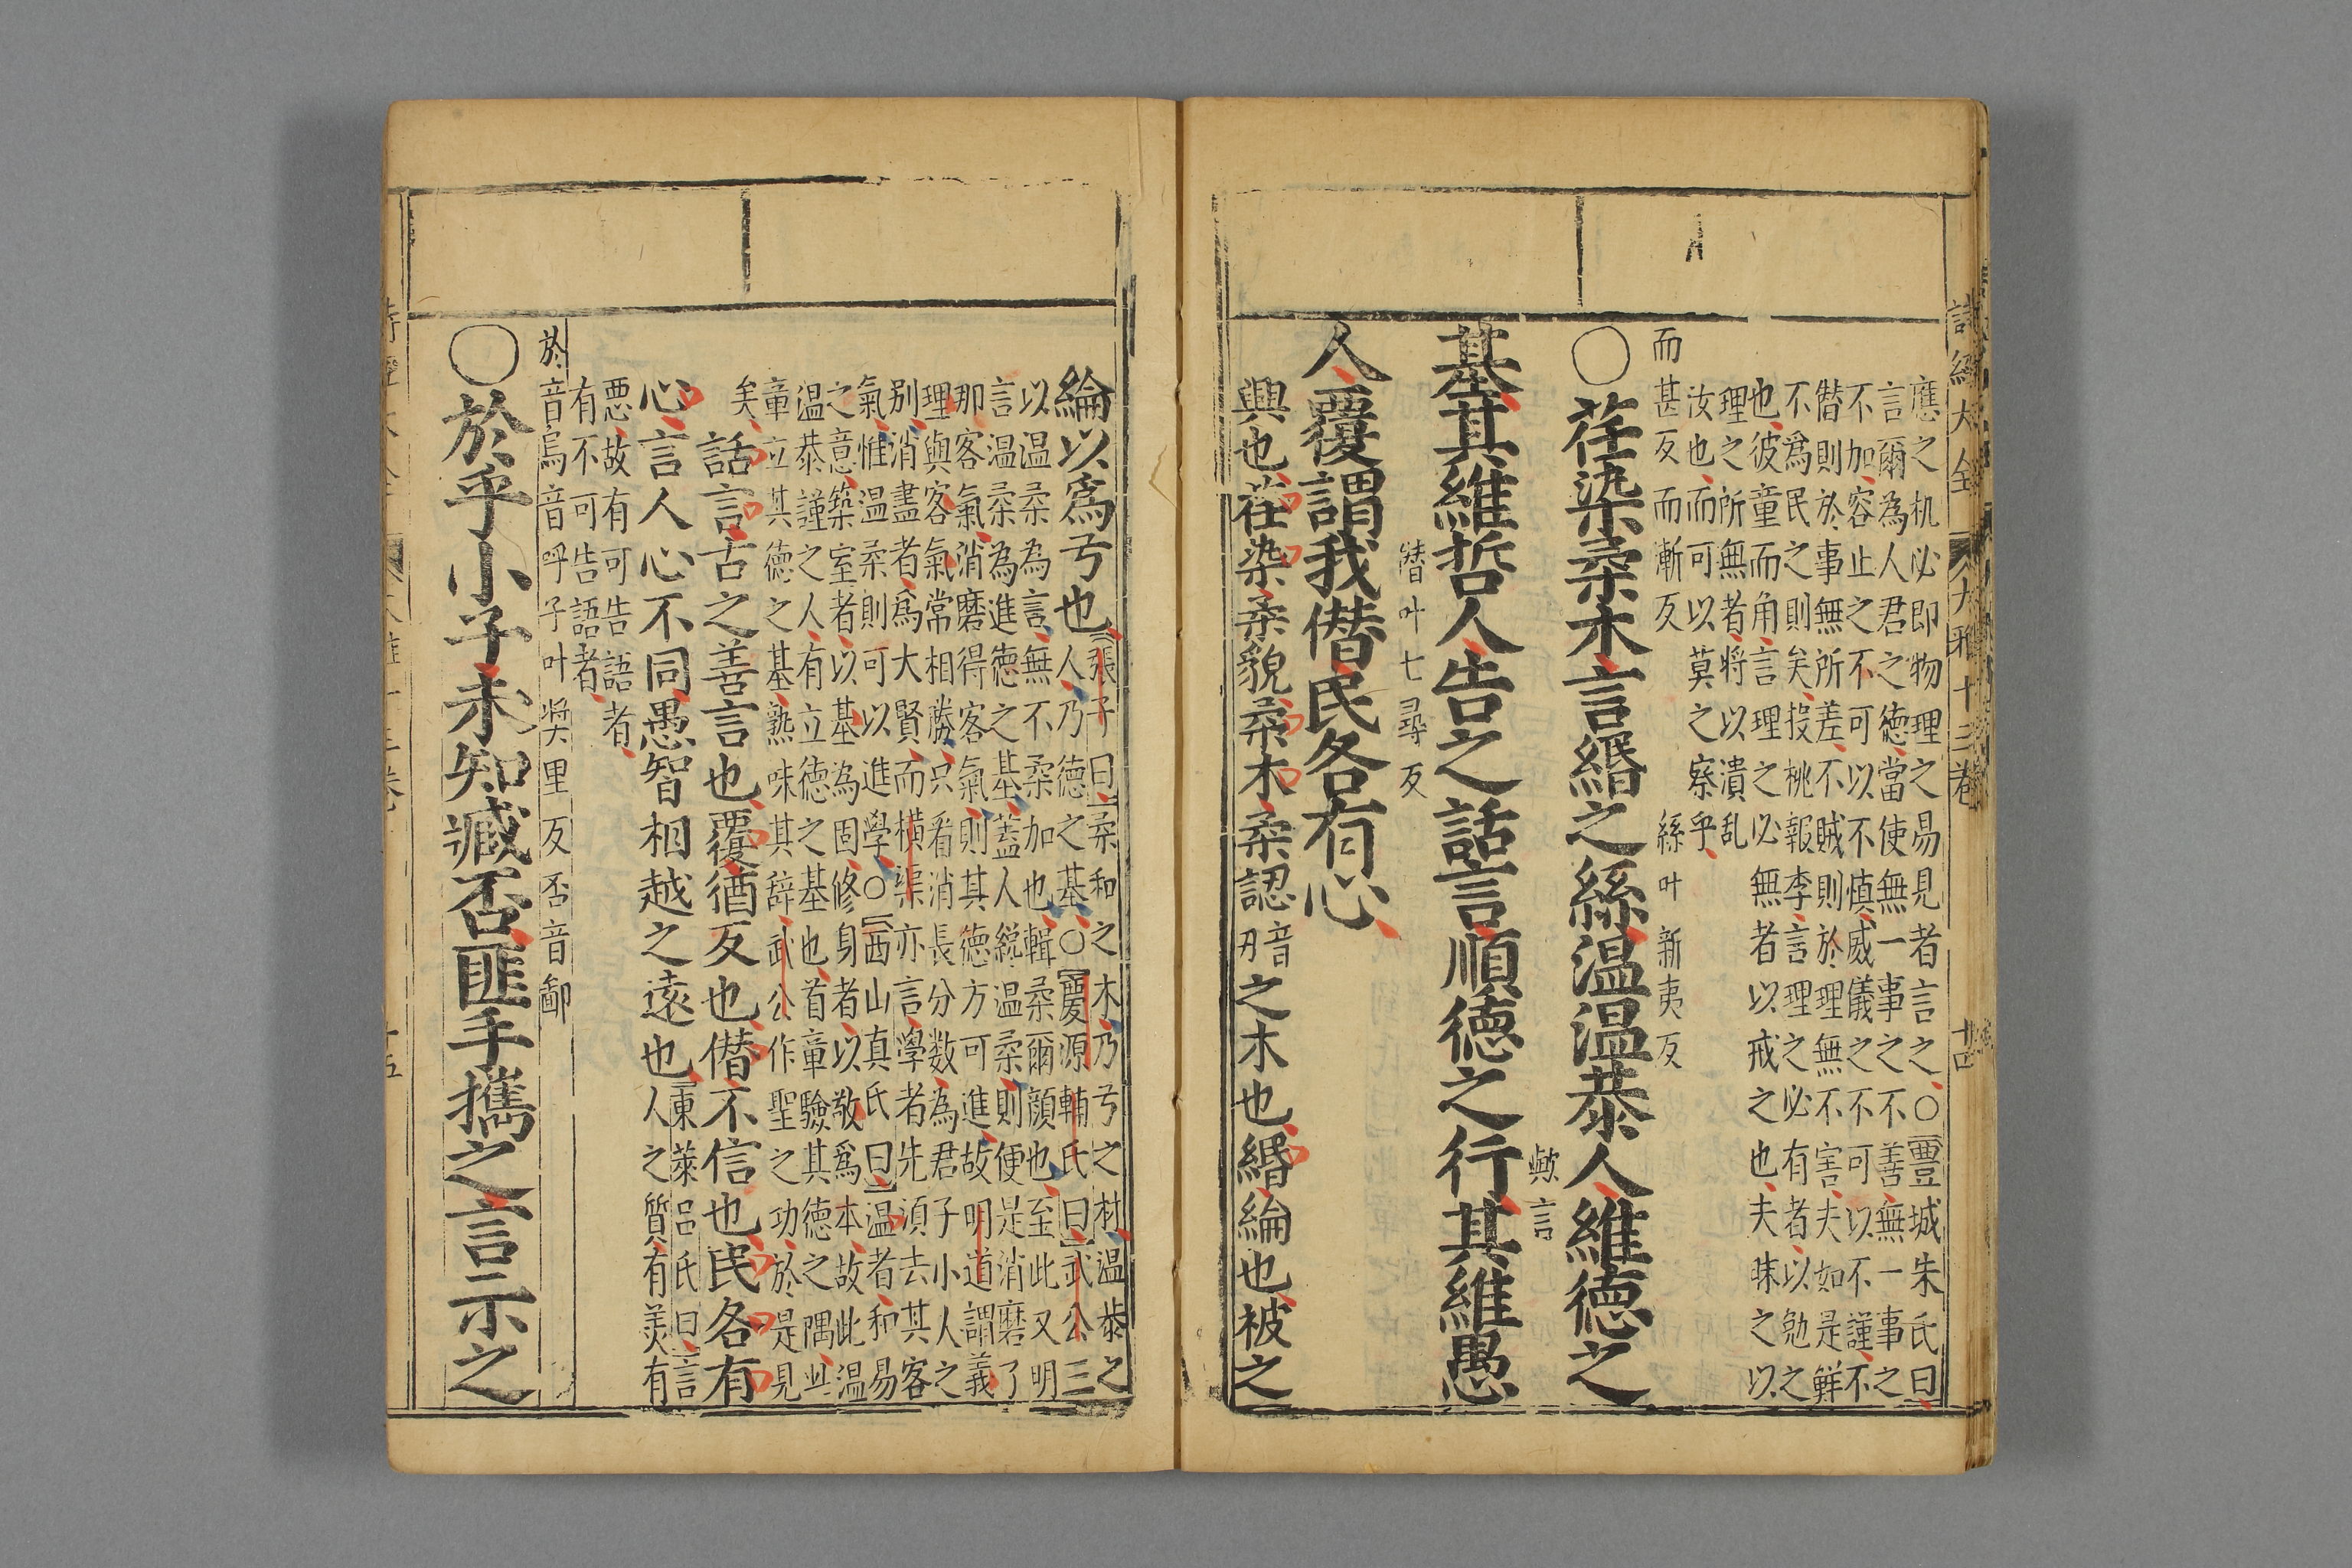 詩經大全 大雅十三卷 十四
應之机必即物理之易見者言之○豐城朱氏曰
言爾為人君之德當使無一事之不善無一事之
不加容止之不可以不慎威儀之不可以不謹不
僭則於事無所差不賊則於理無不害夫如是鮮
不爲民之則矣投桃報李言理之必有者以勉之
也彼童而角言理之必無者以戒之也夫昧之以
理之所無者將以潰乱
汝也而可以莫之察乎
而甚反而漸反 絲叶新夷反
○荏染柔木言緡之絲温温恭人維德之
歟言
基其維哲人告之話言順德之行其維愚
僭叶七尋反
人覆謂我僭民各有心
興也荏染柔貌柔木柔認音刃之木也緡綸也被之
綸以爲弓也張子曰柔和之木乃弓之材温恭之
人乃德之基○慶源輔氏曰武公三
以温柔為言無不柔加也輯柔爾顔也至此又明
言温柔為進德之基蓋人纔温柔則便是消磨了
那客氣消磨得客氣則其德方可進故明道謂義
理與客氣常相勝只看消長分数為君子小人之
别消盡者爲大賢而横渠亦言學者先須去其客
氣惟温柔則可以進學○西山真氏曰温者和易
之意築室者以基為固修身者以敬爲本故此温
温恭謹之人有立德之基也首章驗其德之隅此
章立其德之基熟味其辞武公作聖之功於是見
矣
話言古之善言也覆猶反也僭不信也民各有
心言人心不同愚智相越之遠也東萊呂氏曰言
人之質有美有
惡故有可告語者
有不可告語者
於音烏音呼子叶奬里反否音鄙
○於乎小子未知臧否匪手攜之言示之